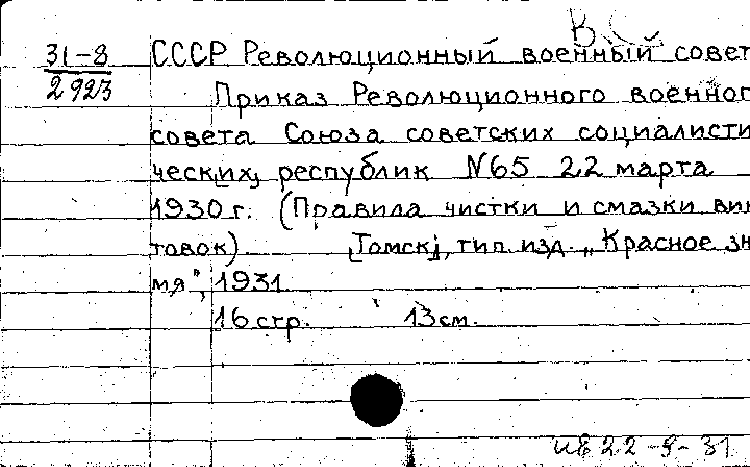 В.С.
31-8 СССР Революционный военный совет
2923 Приказ Революционного военног
совета Союза советских социалисти
ческих республик N65 22 марта
1930 г. (Правила чистки и смазки вин
товок) [Томск], тип. изд. „Красное зн
мя", 1931.
16 стр. 13 см.
22-9-31